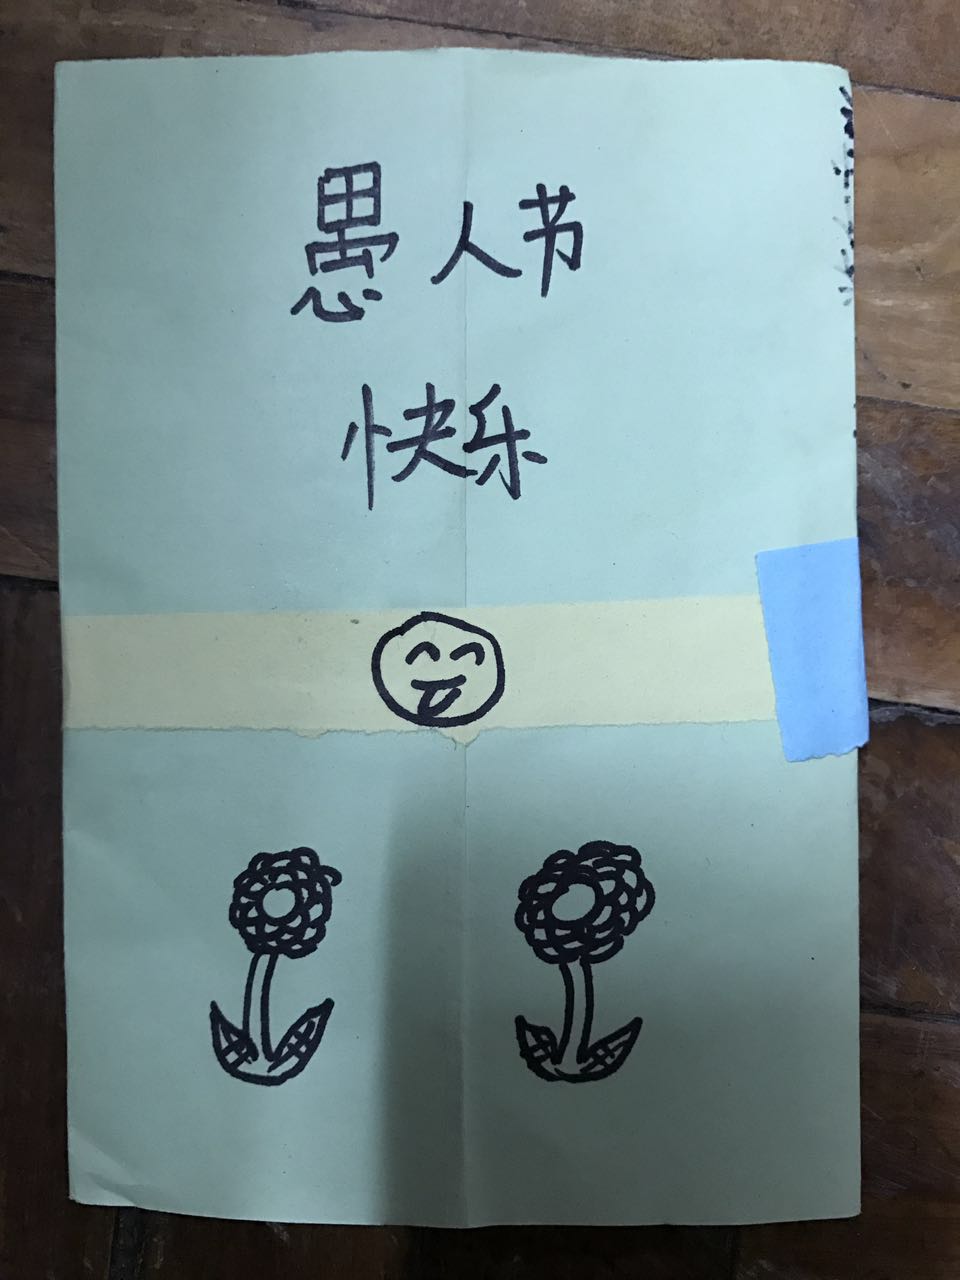 愚人节
快乐